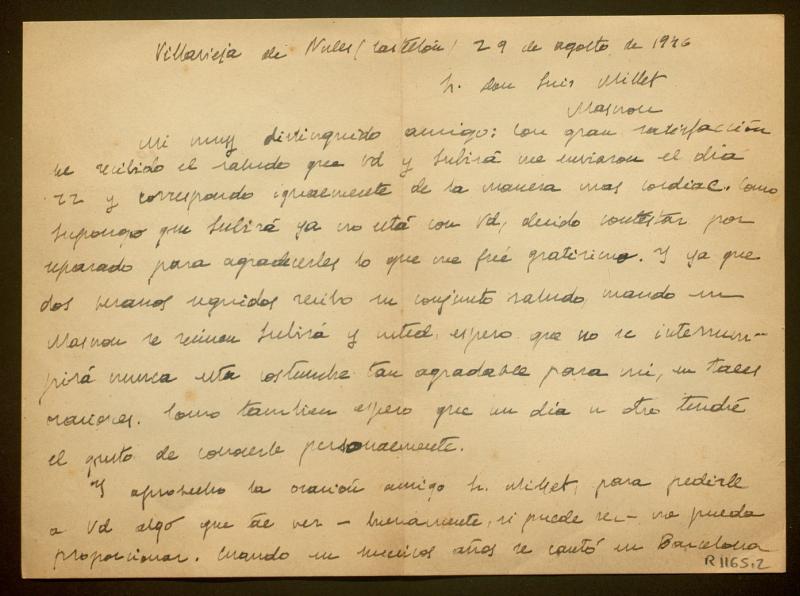 Villavieja de Nules (Castellón) 29 de agosto de 1946
Sr. Don Luis Millet
Masnou
Mi muy distinguido amigo: Con gran satisfacción
he recibido el saludo que Vd y Subirá me enviaron el día
22 y correspondo igualmente de la manera mas cordial. Como
supongo que Subirá ya no está con Vd, decido contestar por
separado para agradecerles lo que me fué gratisimo. Y ya que
dos veranos seguidos recibo su conjunto saludo, cuando en
Masnou se reúnen Subirá y usted, espero que no se interrum-
pirá nunca esta costumbre tan agradable para mi, en tales
ocasiones. Como tambien espero que un dia u otro tendré
el gusto de conocerle personalmente.
Y aprovecho la ocasión amigo Sr. Millet, para pedirle
a Vd algo que tal vez - buenamente, si puede ser - me pueda
proporcionar. Cuando en muchos años se cantó en Barcelona
R 1165.2